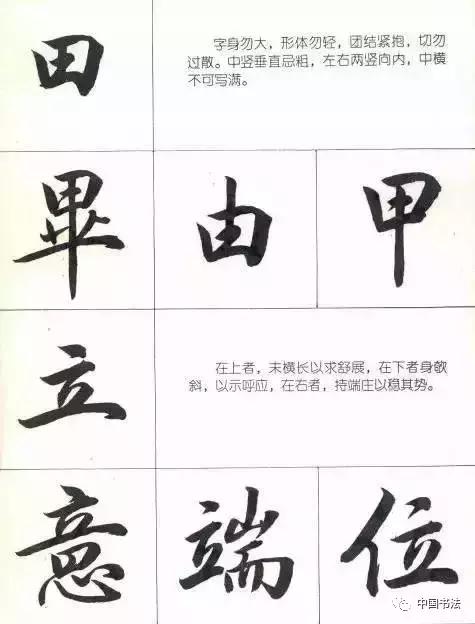 田
字身勿大，形体勿轻，团结紧抱，切勿
过散。中竖垂直忌粗，左右两竖向内，中横
不可写满。
畢 由 甲
立
在上者，末横长以求舒展，在下者身敧
斜，以示呼应，在右者，持端庄以稳其势。
意 端 位
中国书法